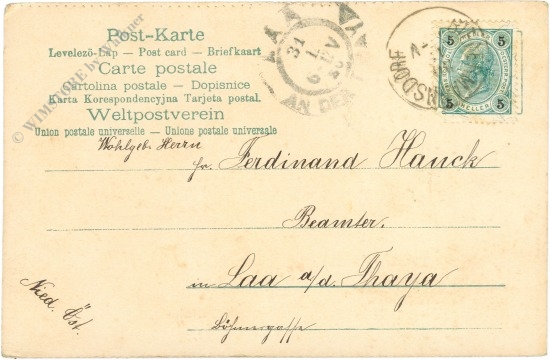 Post-Karte
Levelezö-Lap — Post card — Briefkaart
Carte postale
Cartolina postale — Dopisnice
Karta Korespondencyjna Tarjeta postal.
Weltpostverein
Union postale universelle — Unione postale universale
© WIMSTORE by Wimmer
LAA
AN DER THAYA
31
7
5
5
5
5
HELLER
Wohlgeb. Herrn
Hr. Ferdinand Hauck
Beamter.
in Laa a/d. Thaya
Böhmergasse
Nied. Öst.